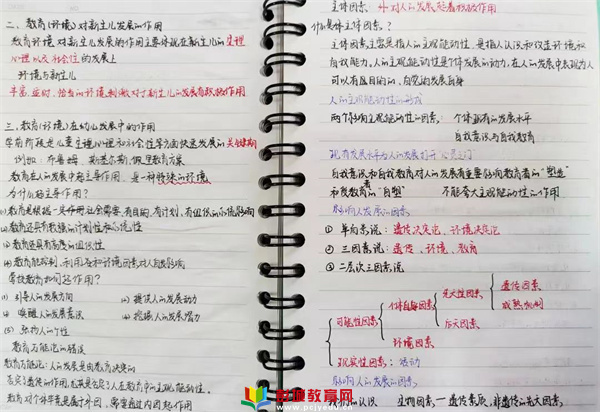 二、教育(环境)对新生儿发展的作用
教育环境对新生儿发展的作用主要体现在新生儿的生理
心理以及社会性的发展上
环境与新生儿
丰富、适时、恰当的环境刺激对于新生儿的发展有积极作用
三、教育(环境)在幼儿发展中的作用
学前阶段是儿童生理心理和社会性等方面快速发展的关键期
例如:布鲁姆 斯基尔斯 佩里教育方案
教育在人的发展中起主导作用、是一种特殊的环境
为什么起主导作用?
(1)教育是根据一定社会需要,有目的,有计划,有组织的系统影响
(2)教育还具有较强的计划性和系统性
(3)教育还具有高度的组织性
(4)教育能控制、利用各种环境因素对人自发影响
学校教育如何起作用?
(1)引导人的发展方向
(2)提供人的发展动力
(3)唤醒人的发展意识
(4)挖掘人的发展潜力
(5)张扬人的个性
教育万能论的错误
教育万能论:人的发展是由教育决定的
否定了遗传的作用,尤其是否定了人在教育中的主观能动性。
教育对个体来看是属于外因,需要通过内因起作用
主体因素:对人的发展起着积极作用
什么是体主体因素?
主体因素主要是指人的主观能动性,是指人认识和改变环境和
自我能力,人的主观能动性是个体发展的动力,在人的发展中表现为人
可以有意目的的,自觉的发展自身
人的主观能动性的形成
两个影响主观能动性的因素:个体现有的发展水平
自我意识与自我教育
现有发展水平为人的发展打开“必要之门”
自我意识和自我教育对人的发展有重要影响教育者的“塑造”
和受教育者的“自塑” 不能夸大主观能动性的作用
影响人发展的因素
① 单因素说:遗传决定论、环境决定论
② 三因素说:遗传、环境、教育
③ 二层次三因素说
可能性因素
个体自身因素
先天性因素
遗传因素
成熟机制
后天因素
环境因素
现实性因素:活动
影响人的发展的因素
的认识 生物因素—遗传素质、非遗传的先天因素
中顺教育网
www.pcjyedu.cn